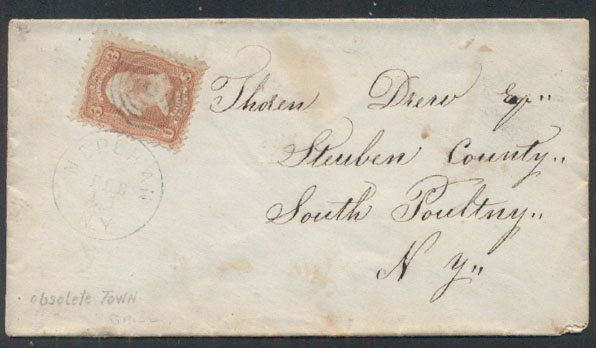 3 3
U S
Thoren Drew Esq,,
Steuben County,,
South Poultny,,
N Y,,
obsolete TOWN